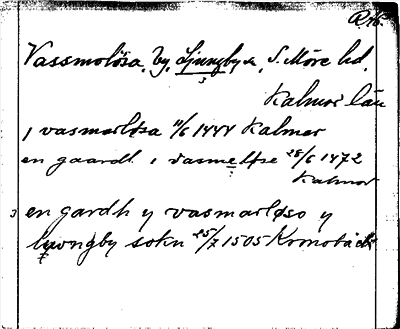 R.16.
Vassmolösa, by, Ljungby s, S. Möre hd,
Kalmar län
j vasmarløsa 11/6 1444 Kalmar
en gaardl i vasmeløse 28/6 1472
Kalmar
3 en gardh y vasmarløso y
lyungby sokn 25/7 1505 Kronobäck